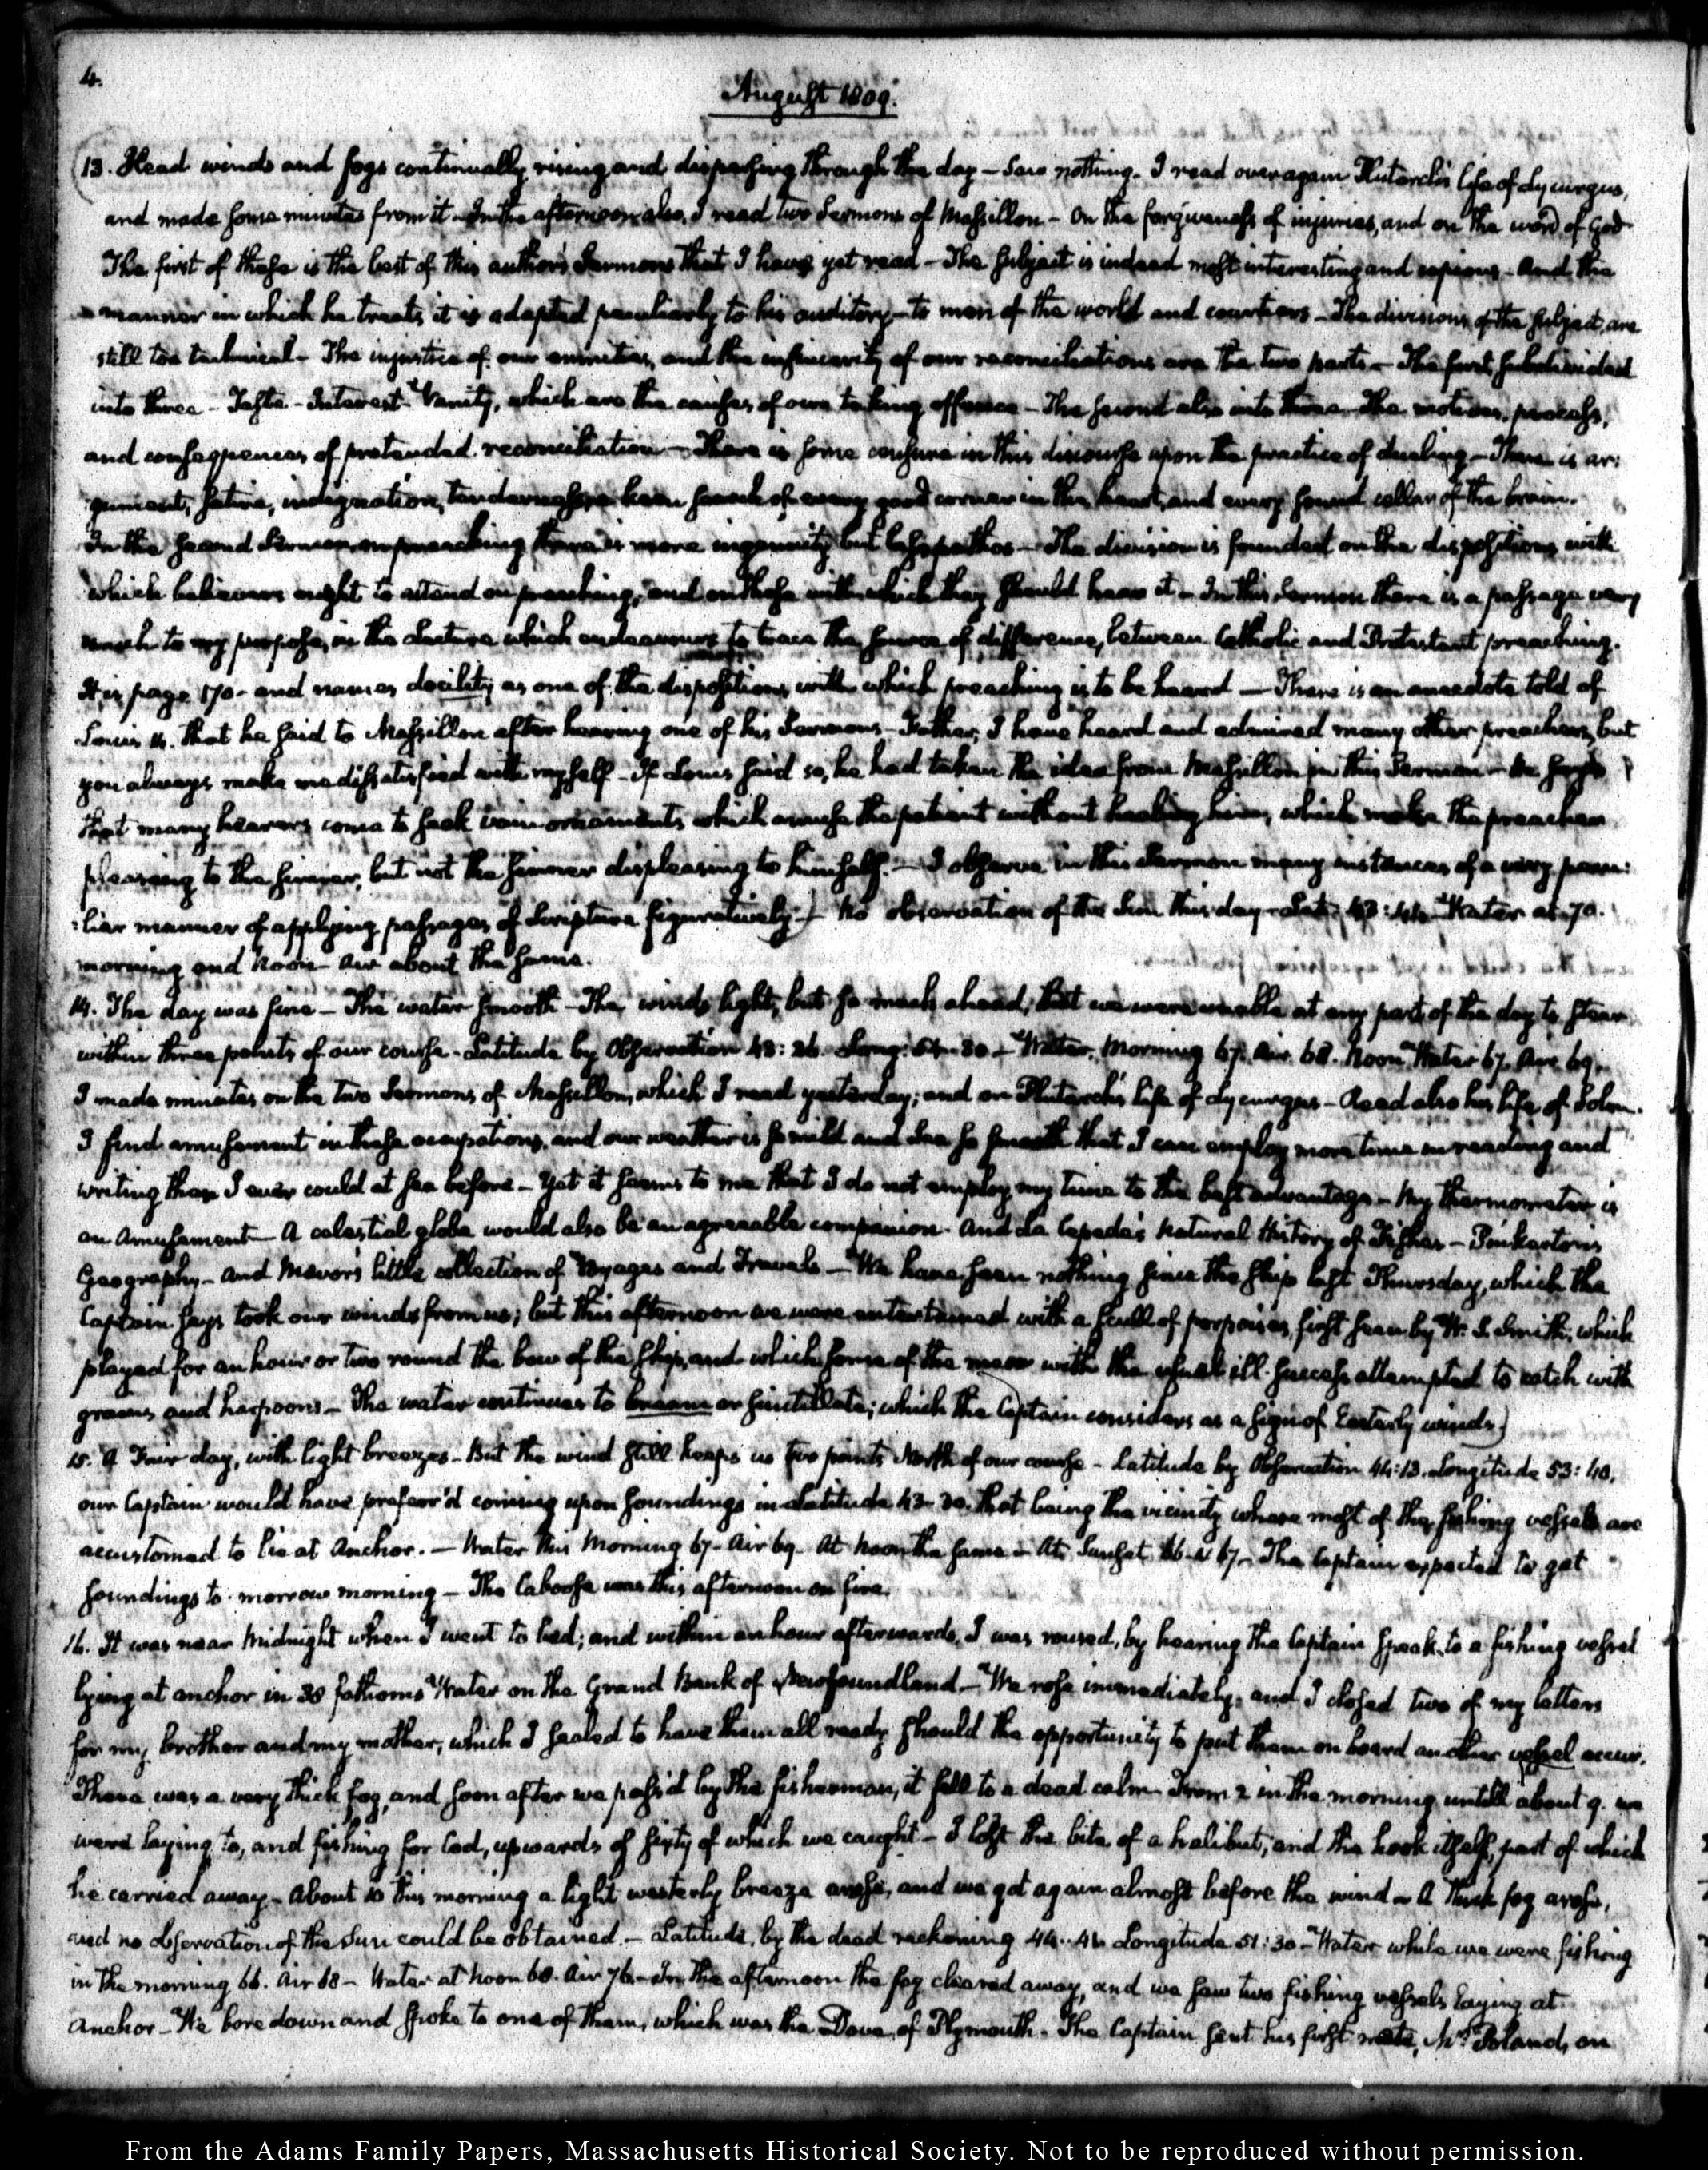 4.
August 1809.
13. Head winds and fogs continually rising and dispersing through the day — Saw nothing. I read over again Plutarch's life of Lycurgus,
and made some minutes from it — In the afternoon also, I read two Sermons of Massillon — On the forgiveness of injuries, and on the word of God
The first of these is the best of this author's Sermons that I have yet read — The subject is indeed most interesting and copious — And the
manner in which he treats it is adapted peculiarly to his auditory — to men of the world and courtiers — The divisions of the subject, are
still too technical — The injustice of our enmities, and the insincerity of our reconciliations are the two parts — The first subdivided
into three — Taste — Interest — Vanity, which are the causes of our taking offence — The second also into three — The motives, process,
and consequences of pretended reconciliation — There is some censure in this discourse upon the practice of duelling — There is ar:
gument, satire, indignation, tenderness, a keen search of every good corner in the heart, and every sound cellar of the brain.
In the second Sermon on preaching there is more ingenuity but less pathos — The division is founded on the dispositions with
which believers ought to attend on preaching, and on those with which they should hear it — In this Sermon there is a passage very
much to my purpose, in the Lecture which endeavours to trace the source of difference, between Catholic and Protestant preaching.
It is page 170 — and names docility as one of the dispositions with which preaching is to be heard — There is an anecdote told of
Louis 14. that he said to Massillon after hearing one of his Sermons — Father, I have heard and admired many other preachers, but
you always make me dissatisfied with myself — If Louis said so, he had taken the idea from Massillon in this Sermon — He says
that many hearers come to seek vain ornaments which amuse the patient without healing him, which make the preacher
pleasing to the sinner, but not the sinner displeasing to himself. — I observe in this Sermon many instances of a very pecu:
:liar manner of applying passages of Scripture figuratively.) No observation of the Sun this day — Lat: 43:44. Water at 70.
morning and Noon — Air about the same.
14. The day was fine — The water smooth — The winds light, but so much ahead, that we were unable at any part of the day to steer
within three points of our course. Latitude by Observation 43:26. Long: 54–30 — Water, Morning 67. Air 68. Noon Water 67. Air 69.
I made minutes on the two Sermons of Massillon, which I read yesterday; and on Plutarch's life of Lycurgus — Read also his life of Solon.
I find amusement in these occupations, and our weather is so mild and Sea so smooth that I can employ more time in reading and
writing than I ever could at sea before — Yet it seems to me that I do not employ my time to the best advantage — My thermometer is
an Amusement — A celestial globe would also be an agreeable companion. And La Cepede's Natural History of Fishes — Pinkerton's
Geography — and Mavor's little collection of Voyages and Travels — We have seen nothing since the ship last Thursday, which the
Captain says took our winds from us; but this afternoon we were entertained with a scull of porpoises, first seen by W. S. Smith; which
played for an hour or two round the bow of the ship, and which some of the men with the usual ill success attempted to catch with
grains and harpoons — The water continues to or scintillate; which the Captain considers as a sign of Easterly winds.)
15. A Fair day, with light breezes — But the wind still keeps us two points North of our course — Latitude by Observation 44:13. Longitude 53:40.
our Captain would have prefer'd coming upon soundings in Latitude 43–30. that being the vicinity where most of the fishing vessels are
accustomed to lie at Anchor. — Water this Morning 67 — Air 69. At Noon the same — At Sunset 66 & 67 — The Captain expected to get
soundings to-morrow morning — The Caboose was this afternoon on fire.
16. It was near Midnight when I went to bed; and within an hour afterwards, I was roused, by hearing the Captain speak to a fishing vessel
lying at anchor in 30 fathoms Water on the Grand Bank of Newfoundland — We rose immediately, and I closed two of my letters
for my brother and my mother, which I sealed to have them all ready should the opportunity to put them on board another vessel occur.
There was a very thick fog, and soon after we pass'd by the fisherman, it fell to a dead calm — From 2 in the morning untill about 9. we
were laying to, and fishing for Cod, upwards of sixty of which we caught — I lost the bite of a halibut; and the hook itself, part of which
he carried away — About 10 this morning a light westerly breeze arose, and we got again almost before the wind — A thick fog arose,
and no observation of the Sun could be obtained. — Latitude, by the dead reckoning 44..44 Longitude 51:30 — Water while we were fishing
in the morning 66. Air 68 — Water at Noon 60. Air 76 — In the afternoon the fog cleared away, and we saw two fishing vessels laying at
Anchor — We bore down and spoke to one of them, which was the Dove, of Plymouth. The Captain sent his first mate, Mr. Poland, on
From the Adams Family Papers, Massachusetts Historical Society. Not to be reproduced without permission.